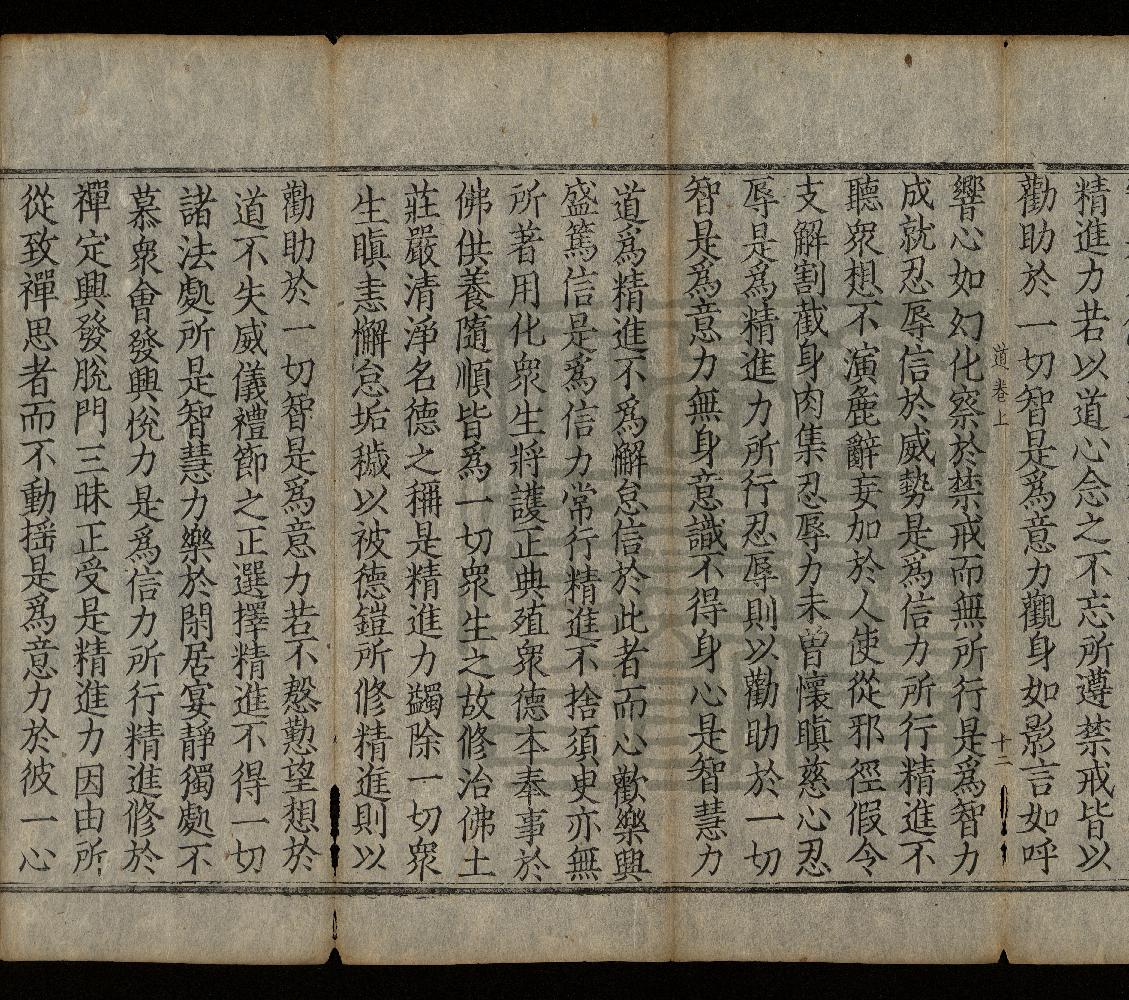 精進力若以道心念之不忘所遵禁戒皆以
勸助於一切智是爲意力觀身如影言如呼
道卷上
十二
響心如幻化察於禁戒而無所行是爲智力
成就忍辱信於威勢是爲信力所行精進不
聽衆想不演麁辭妄加於人使從邪徑假令
支解割截身肉集忍辱力未曽懷瞋慈心忍
辱是爲精進力所行忍辱則以勸助於一切
智是爲意力無身意識不得身心是智慧力
道爲精進不爲懈怠信於此者而心歡樂興
盛篤信是爲信力常行精進不捨須臾亦無
所著用化衆生將護正典殖衆德本奉事於
佛供養隨順皆爲一切衆生之故修治佛土
莊嚴清淨名德之稱是精進力蠲除一切衆
生瞋恚懈怠垢穢以被德鎧所修精進則以
勸助於一切智是爲意力若不慇懃望想於
道不失威儀禮節之正選擇精進不得一切
諸法處所是智慧力樂於閑居宴靜獨處不
慕衆會發興恱力是爲信力所行精進修於
禪定興發脫門三昧正受是精進力因由所
從致禪思者而不動揺是爲意力於彼一心